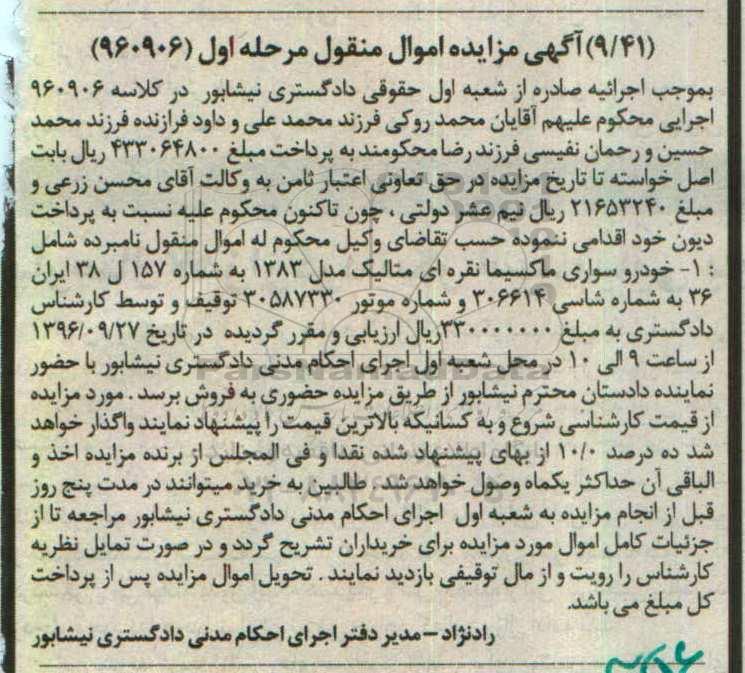 (۹/۴۱) آگهی مزایده اموال منقول مرحله اول (۹۶۰۹۰۶)
بموجب اجرائیه صادره از شعبه اول حقوقی دادگستری نیشابور در کلاسه ۹۶۰۹۰۶
اجرایی محکوم علیهم آقایان محمد روکی فرزند محمد علی و داود فرازنده فرزند محمد
حسین و رحمان نفیسی فرزند رضا محکومند به پرداخت مبلغ ۴۳۳۰۶۴۸۰۰ ریال بابت
اصل خواسته تا تاریخ مزایده در حق تعاونی اعتبار ثامن به وکالت آقای محسن زرعی و
مبلغ ۲۱۶۵۳۲۴۰ ریال نیم عشر دولتی ، چون تاکنون محکوم علیه نسبت به پرداخت
دیون خود اقدامی ننموده حسب تقاضای وکیل محکوم له اموال منقول نامبرده شامل
: ۱- خودرو سواری ماکسیما نقره ای متالیک مدل ۱۳۸۳ به شماره ۱۵۷ ل ۳۸ ایران
۳۶ به شماره شاسی ۳۰۶۶۱۴ و شماره موتور ۳۰۵۸۷۳۳۰ توقیف و توسط کارشناس
دادگستری به مبلغ ۳۳۰۰۰۰۰۰۰ریال ارزیابی و مقرر گردیده در تاریخ ۱۳۹۶/۰۹/۲۷
از ساعت ۹ الی ۱۰ در محل شعبه اول اجرای احکام مدنی دادگستری نیشابور با حضور
نماینده دادستان محترم نیشابور از طریق مزایده حضوری به فروش برسد . مورد مزایده
از قیمت کارشناسی شروع و به کسانیکه بالاترین قیمت را پیشنهاد نمایند واگذار خواهد
شد ده درصد ۱۰/۰ از بهای پیشنهاد شده نقدا و فی المجلس از برنده مزایده اخذ و
الباقی آن حداکثر یکماه وصول خواهد شد . طالبین به خرید میتوانند در مدت پنج روز
قبل از انجام مزایده به شعبه اول اجرای احکام مدنی دادگستری نیشابور مراجعه تا از
جزئیات کامل اموال مورد مزایده برای خریداران تشریح گردد و در صورت تمایل نظریه
کارشناس را رویت و از مال توقیفی بازدید نمایند . تحویل اموال مزایده پس از پرداخت
کل مبلغ می باشد.
رادنژاد – مدیر دفتر اجرای احکام مدنی دادگستری نیشابور